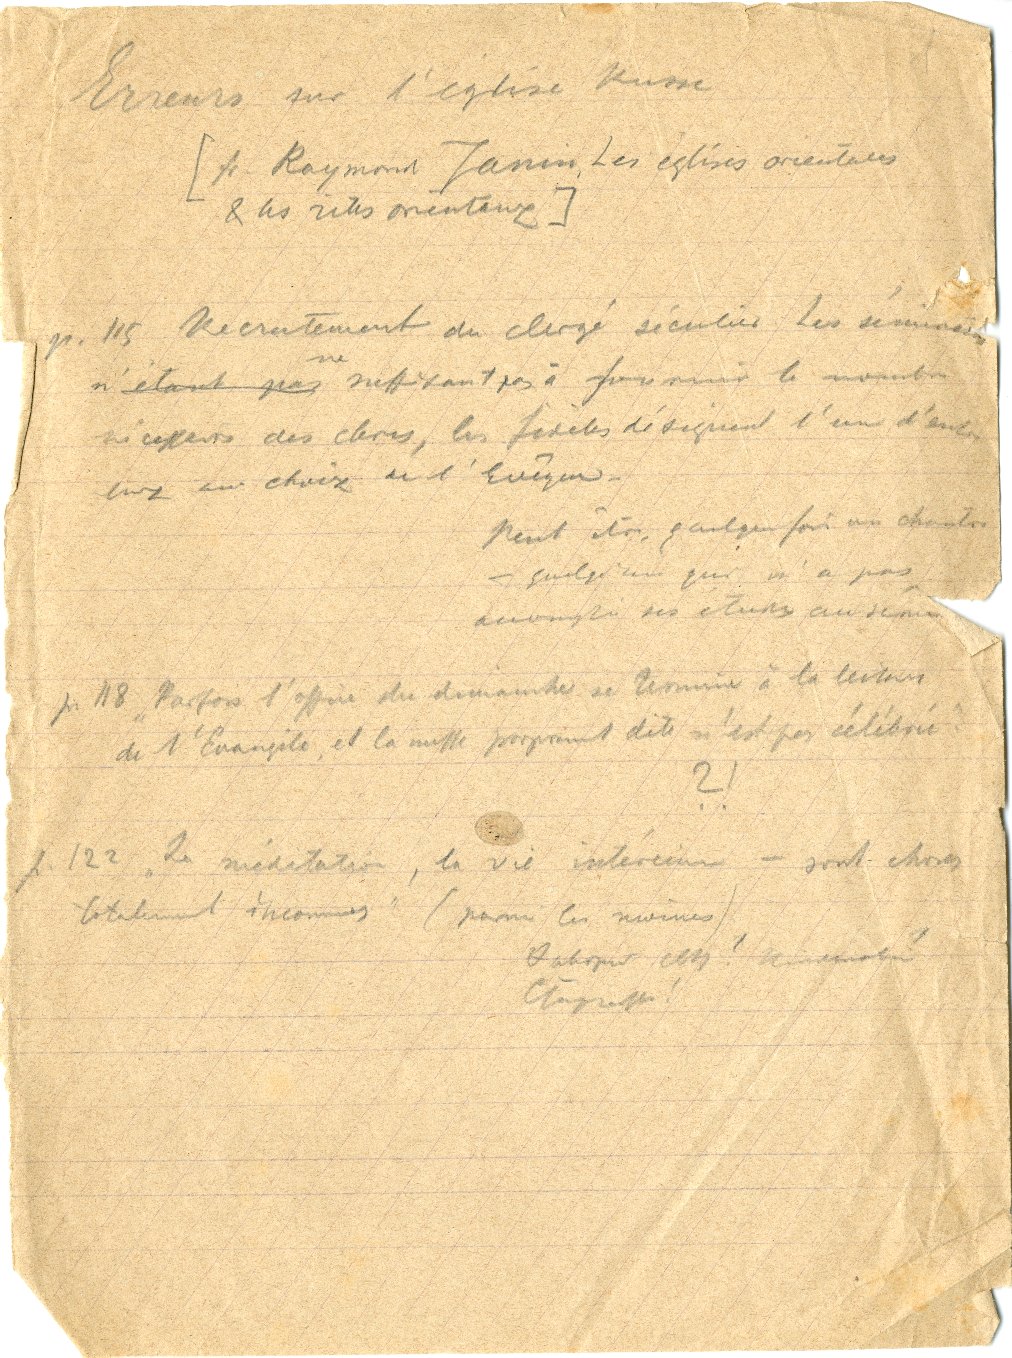 Erreurs sur l'église Russe
[fr. Raymond Janin, Les églises orientales
& les rites orientaux]
p. 115 Recrutement du clergé séculier Les séminaires
ne
n'étant pas suffisant pas à fournir le nombre
nécessaire des clercs, les fidèles désignent l'un d'entre
eux au choix de l'Evêque.
Peut être, quelquefois un chantre
— quelqu'un qui n'a pas
accompli ses études au sémin
p. 118 „Parfois l'office du dimanche se termine à la lecture
de l'Évangile, et la messe proprement dite n'est pas célébrée"
?!
p. 122 „La méditation, la vie intérieure — sont choses
totalement inconnues" (parmi les moines)